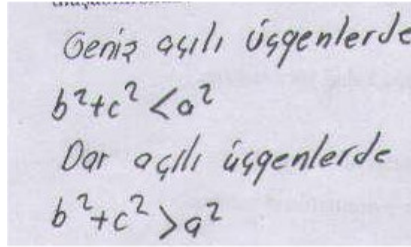 Geniş açılı üçgenlerde
b²+c² <a²
Dar açılı üçgenlerde
b²+c² >a²